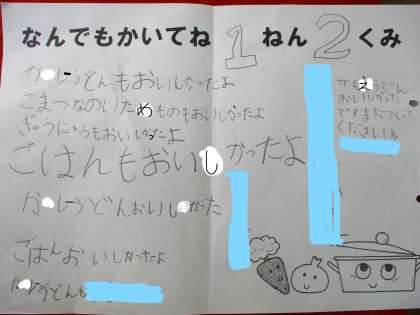 なんでもかいてね 1ねん2くみ
かれーうどんもおいしかったよ
こまつなのいためものもおいしかったよ
ぎゅうにゅうもおいしかったよ
ごはんもおいしかったよ
かれーうどんおいしかった
ごはんおいしかったよ
かれーうどんも
かれえうどん
おいしかった
ですまたつくって
くださいね